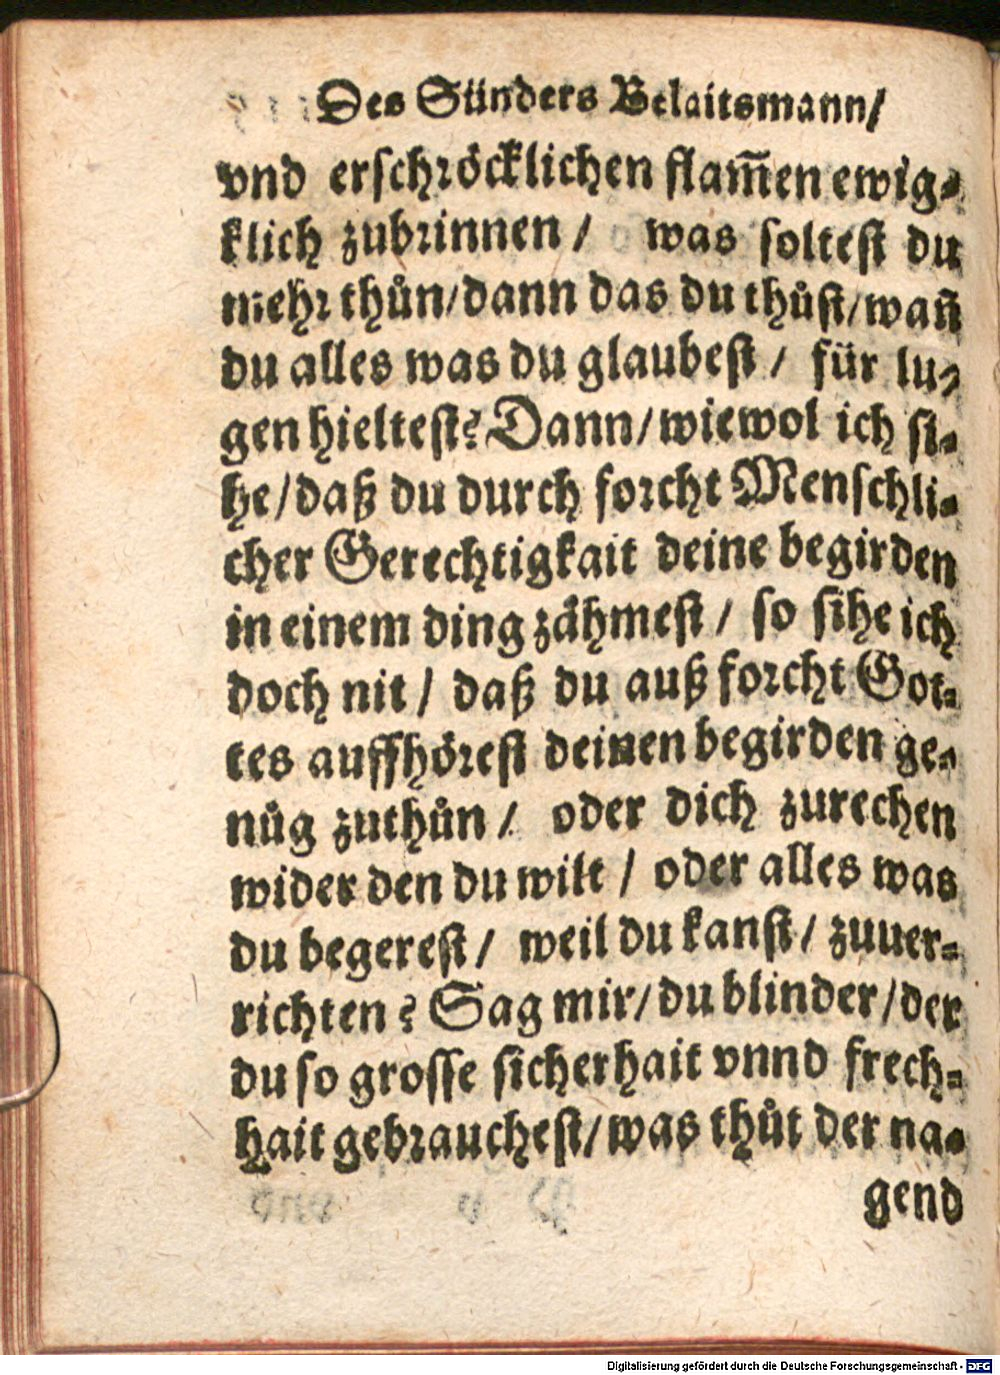 Des Sünders Belaitsmann/
vnd erschröcklichen flam̃en ewig-
klich zubrinnen / was soltest du
mehr thůn/dann das du thůst/wañ
du alles was du glaubest / für lu-
gen hieltest? Dann/wiewol ich si-
he/daß du durch forcht Menschli-
cher Gerechtigkait deine begirden
in einem ding zåhmest / so sihe ich
doch nit / daß du auß forcht Got-
tes auffhörest deinen begirden ge-
nůg zuthůn / oder dich zurechen
wider den du wilt / oder alles was
du begerest / weil du kanst / zuuer-
richten? Sag mir/du blinder/der
du so grosse sicherhait vnnd frech-
hait gebrauchest/was thůt der na-
gend
Digitalisierung gefördert durch die Deutsche Forschungsgemeinschaft - DFG